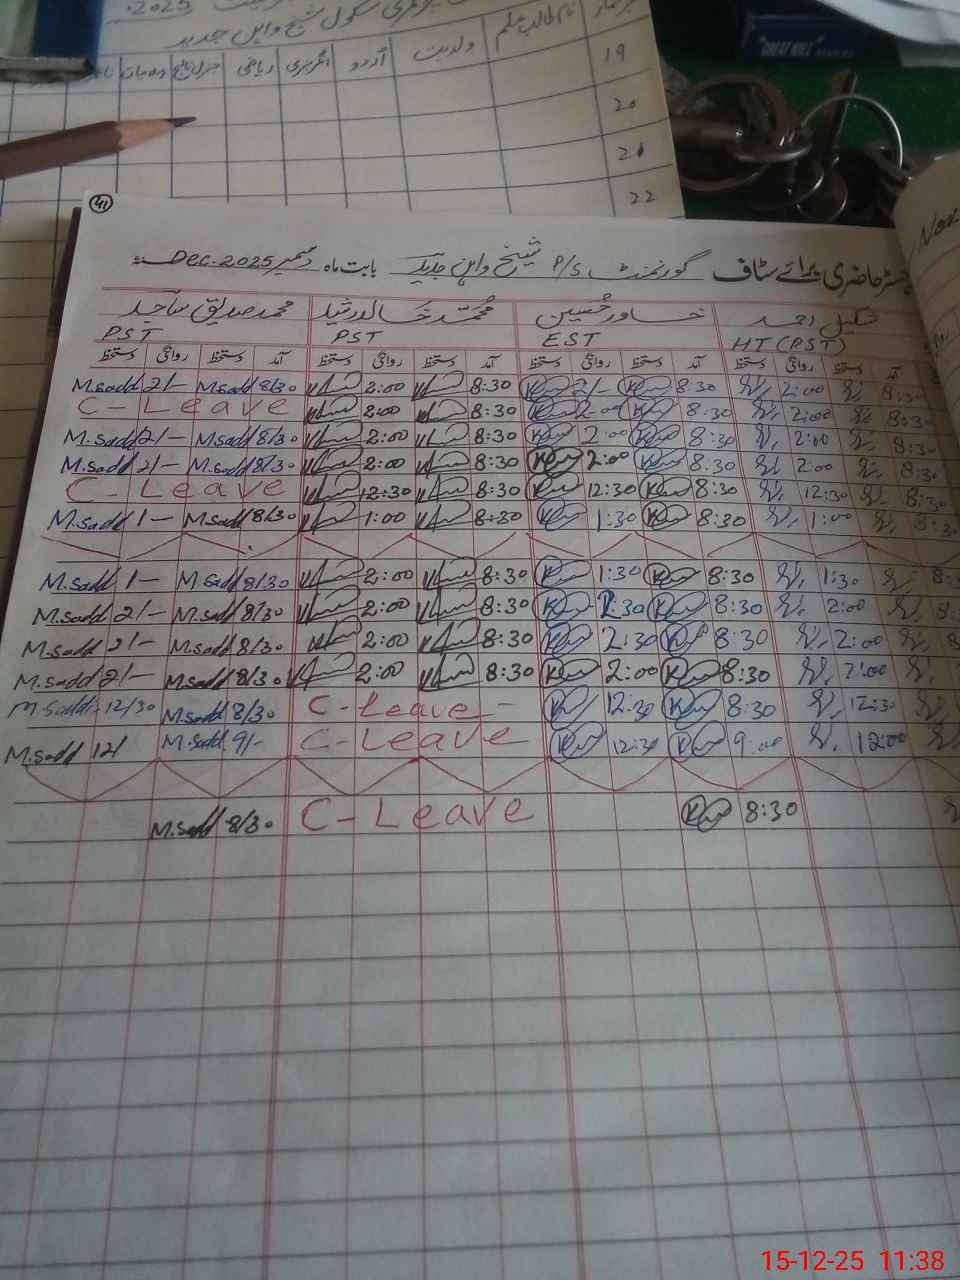 2025
نام طالب علم ولدیت اردو انگریزی ریاضی
19
20
21
22
GREAT WALL
41
رجسٹر حاضری برائے سٹاف گورنمنٹ P/S شیخ واہن جدید بابت ماہ دسمبر Dec. 2025
شکیل احمد خاور حسین محمد خالد رشید محمد صدیق ساجد
HT (PST) EST PST PST
آمد دستخط روانگی دستخط آمد دستخط روانگی دستخط آمد دستخط روانگی دستخط آمد دستخط روانگی دستخط
M.Sadd 2/- M.Sadd 8/30 2:00 8:30 2/- 8:30 2:00 8:30
C-Leave 2:00 8:30 2:00 8:30 2:00 8:30
M.Sadd 2/- M.Sadd 8/30 2:00 8:30 2:00 8:30 2:00 8:30
M.Sadd 2/- M.Sadd 8/30 2:00 8:30 2:00 8:30 2:00 8:30
C-Leave 12:30 8:30 12:30 8:30 12:30 8:30
M.Sadd 1- M.Sadd 8/30 1:00 8:30 1:30 8:30 1:00 8:30
M.Sadd 1- M.Sadd 8/30 2:00 8:30 1:30 8:30 1:30
M.Sadd 2/- M.Sadd 8/30 2:00 8:30 2:30 8:30 2:00
M.Sadd 2/- M.Sadd 8/30 2:00 8:30 2:30 8:30 2:00
M.Sadd 2/- M.Sadd 8/30 2:00 8:30 2:00 8:30 2:00
M.Sadd 12/30 M.Sadd 8/30 C-Leave - 12:30 8:30 12:30
M.Sadd 12/ M.Sadd 9/- C-Leave 12:30 9:00 12:00
M.Sadd 8/30 C-Leave 8:30
15-12-25 11:38